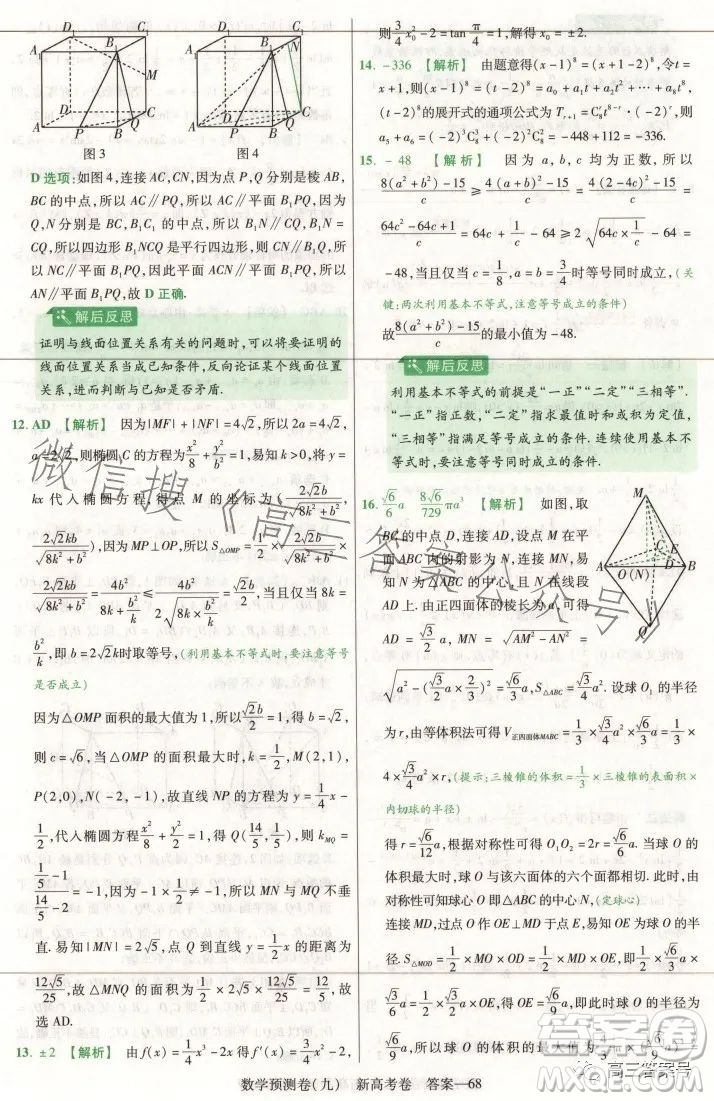 图 3
图 4
D 选项:如图 4,连接 AC,CN,因为点 P,Q 分别是棱 AB,
BC 的中点,所以 AC∥PQ,所以 AC∥平面 B₁PQ,因为
Q,N 分别是棱 BC,B₁C₁ 的中点,所以 B₁N∥CQ,B₁N=
CQ,所以四边形 B₁NCQ 是平行四边形,所以 B₁Q∥CN,所以
CN∥平面 B₁PQ,因此平面 ACN∥平面 B₁PQ,所以
AN∥平面 B₁PQ,故 D 正确.
解后反思
证明与线面位置关系有关的问题时,可以将要证明的
线面位置关系当成已知条件,反向论证某个线面位置关
系,进而判断与已知是否矛盾.
12. AD 【解析】 因为|MF|+|NF|=4√2,所以 2a=4√2,
a=2√2,则椭圆 C 的方程为 x²/8+y²/b²=1. 易知 k>0,将 y=
kx 代入椭圆方程,得点 M 的坐标为 (2√2b/√(8k²+b²),
2√2kb/√(8k²+b²)),因为 MP⊥OP,所以 S△OMP=1/2×2√2b/√(8k²+b²)×
2√2kb/√(8k²+b²)=4b²/(8k+b²/k)≤4b²/(2√(8k×b²/k))=√2b/2,当且仅当 8k=
b²/k,即 b=2√2k时取等号. (利用基本不等式时,要注意等号
是否成立)
因为△OMP 面积的最大值为 1,所以 √2b/2=1,得 b=√2,
则 c=√6,当△OMP 的面积最大时,k=1/2,M(2,1),
P(2,0),N(-2,-1),故直线 NP 的方程为 y=1/4x-
1/2,代入椭圆方程 x²/8+y²/2=1,得 Q(14/5,1/5),则 k_MQ=
(1/5-1)/(14/5-2)=-1,所以直线 MN 与 MQ 不垂
直. 易知|MN|=2√5,点 Q 到直线 y=1/2x 的距离为
12√5/25,故△MNQ 的面积为 1/2×2√5×12√5/25=12/5. 故
选 AD.
13. ±2 【解析】 由 f(x)=1/4x³-2x 得 f′(x)=3/4x²-2,
则 3/4x₀²-2=tan π/4=1,解得 x₀=±2.
14. -336 【解析】 由题意得(x-1)⁸=(x+1-2)⁸,令t
=x+1,则(x-1)⁸=(t-2)⁸=a₀+a₁t+a₂t²+…+a₈t⁸,
(t-2)⁸ 的展开式的通项公式为 Tᵣ₊₁=C₈ʳt⁸⁻ʳ·(-2)ʳ,则
a₅+a₆=(-2)³C₈³+(-2)²C₈²=-448+112=-336.
15. -48 【解析】 因为 a,b,c 均为正数,所以
(8(a²+b²)-15)/c≥(4(a+b)²-15)/c=(4(2-4c)²-15)/c=
(64c²-64c+1)/c=64c+1/c-64≥2√(64c×1/c)-64=
-48,当且仅当 c=1/8,a=b=3/4时等号同时成立,(关
键:两次利用基本不等式,注意等号成立的条件)
故 (8(a²+b²)-15)/c 的最小值为-48.
解后反思
利用基本不等式的前提是“一正”“二定”“三相等”.
“一正”指正数,“二定”指求最值时和或积为定值,
“三相等”指满足等号成立的条件. 连续使用基本不
等式时,要注意等号同时成立的条件.
16. √6/6 a 8√6/729 πa³ 【解析】 如图,取
BC 的中点 D,连接 AD,设点 M 在平
面 ABC 内的射影为 N,连接 MN,易
知 N 为△ABC 的中心,且 N 在线段
AD 上. 由正四面体的棱长为 a,可得
AD=√3/2 a,MN=√(AM²-AN²)=
√(a²-(√3/2 a×2/3)²)=√6/3 a,S△ABC=√3/4 a². 设球 O₁ 的半径
为 r,由等体积法可得 V正四面体MABC=1/3×√3/4 a²×√6/3 a=1/3×
4×√3/4 a²r,(提示:三棱锥的体积=1/3×三棱锥的表面积×
内切球的半径)
得 r=√6/12 a,根据对称性可得 O₁O₂=2r=√6/6 a. 当球 O 的
体积最大时,球 O 与该六面体的六个面都相切. 由
对称性可知球心 O 即△ABC 的中心 N,(定球心)
连接 MD,过点 O 作 OE⊥MD 于点 E,易知 OE 为球 O 的
半径. S△MOD=1/2×MO×OD=1/2×MD×OE,即 1/2×√6/3 a×
√3/6 a=1/2×√3/2 a×OE,得 OE=√6/9 a,即此时球 O 的半径为
数学预测卷(九) 新高考卷 答案—68
微信搜《高三答案公众号》
答案圈
高三答案号